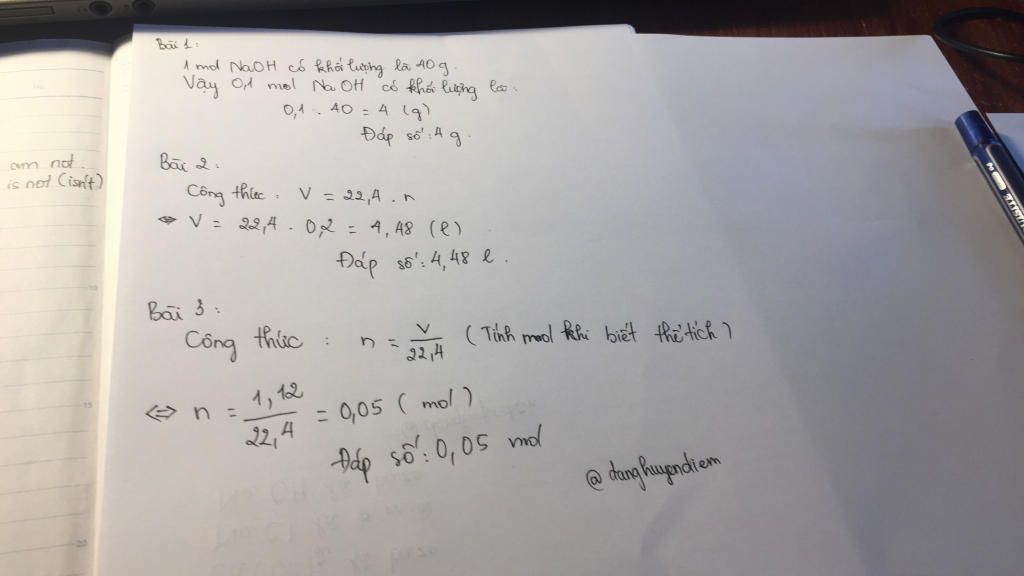 am not.
is not (isn't)
Bài 1:
1 mol NaOH có khối lượng là 40 g.
Vậy 0,1 mol NaOH có khối lượng là:
0,1 . 40 = 4 (g)
Đáp số: 4 g.
Bài 2:
Công thức: V = 22,4 . n
⇔ V = 22,4 . 0,2 = 4,48 (l)
Đáp số: 4,48 l.
Bài 3:
Công thức: n = V/22,4 (Tính mol khi biết thể tích)
⇔ n = 1,12/22,4 = 0,05 (mol)
Đáp số: 0,05 mol
@danghuyendiem